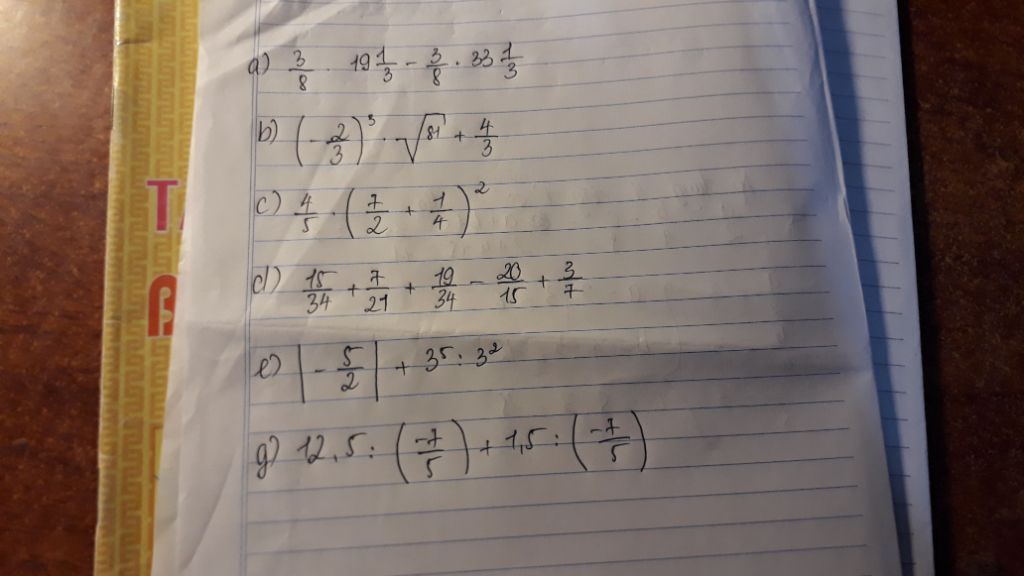 a) 3/8 · 19 1/3 - 3/8 · 33 1/3
b) (-2/3)³ · √81 + 4/3
c) 4/5 · (7/2 + 1/4)²
d) 15/34 + 7/21 + 19/34 - 20/15 + 3/7
e) |-5/2| + 35 : 3²
g) 12,5 : (-7/5) + 1,5 : (-7/5)